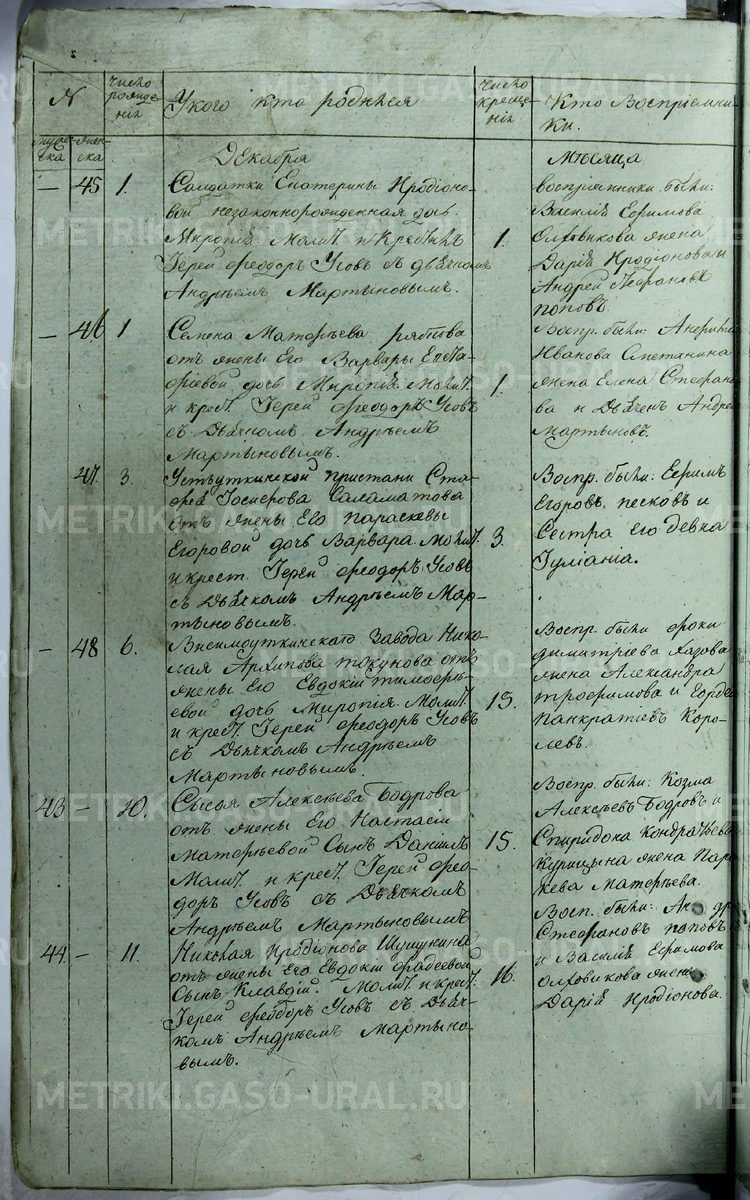 2
№
Число рожденія
У кого кто родился
Число крещенія
Кто Воспріемники.
мужеска
женска
Декабря
Мѣсяца
— 45 1.
Солдатки Екатерины Иродіоно-
вой незаконнорожденная дочь
Миропія. Молит. и Крестилъ
Іерей Феодоръ Усовъ съ дьячкомъ
Андрѣемъ Мартыновымъ.
1.
воспріемники были:
Василія Ефимова
Олховикова жена
Дарія Иродіонова и
Андрей Стефановъ
поповъ.
— 46 1
Семена Матвѣева
отъ жены Его Варвары
дочь Миропія. Молит.
и крест. Іерей Феодоръ Усовъ
съ Дьячкомъ Андрѣемъ
Мартыновымъ.
1.
Воспр. были:
Иванова Сметанина
жена Елена Стефано-
ва и Дьячекъ Андрей
Мартыновъ.
47. 3.
Устьуткинской пристани
Саламатова
отъ жены Его Параскевы
Егоровой дочь Варвара. Молит.
и крест. Іерей Феодоръ Усовъ
съ Дьячкомъ Андрѣемъ Мар-
тыновымъ.
3.
Воспр. были: Ефимъ
Егоровъ песковъ и
Сестра Его девка
Іуліанія.
— 48 6.
Висимоуткинскаго Завода Нико-
лая Архипова токунова отъ
жены Его Евдокіи тимофеѣ-
евой дочь Миропія. Молит.
и крест. Іерей Феодоръ Усовъ
съ Дьячкомъ Андрѣемъ
Мартыновымъ.
15.
Воспр. были
димитріева
жена Александра
трофимова и Гордей
Панкратіевъ Коро-
левъ.
43 — 10.
Сысоя Алексѣева Бодрова
отъ жены Его Настасіи
Матвѣевой Сынъ Даніилъ
Молит. и крест. Іерей Фео-
доръ Усовъ съ Дьячкомъ
Андрѣемъ Мартыновымъ
15.
Воспр. были: Козма
Алексѣевъ Бодровъ и
Спиридона Кондратьева
Курицына жена Пара-
кева Матвѣева.
44. — 11.
Николая Иродіонова Шушунина
отъ жены Его Евдокіи Фадеевой
Сынъ Клавдій. Молит. и крест.
Іерей Феодоръ Усовъ съ Дьяч-
комъ Андрѣемъ Мартыно-
вымъ.
16.
Восп. были: Андрей
Стефановъ поповъ
и Василія Ефимова
олховикова жена
Дарія Иродіонова.
METRIKI.GASO-URAL.RU